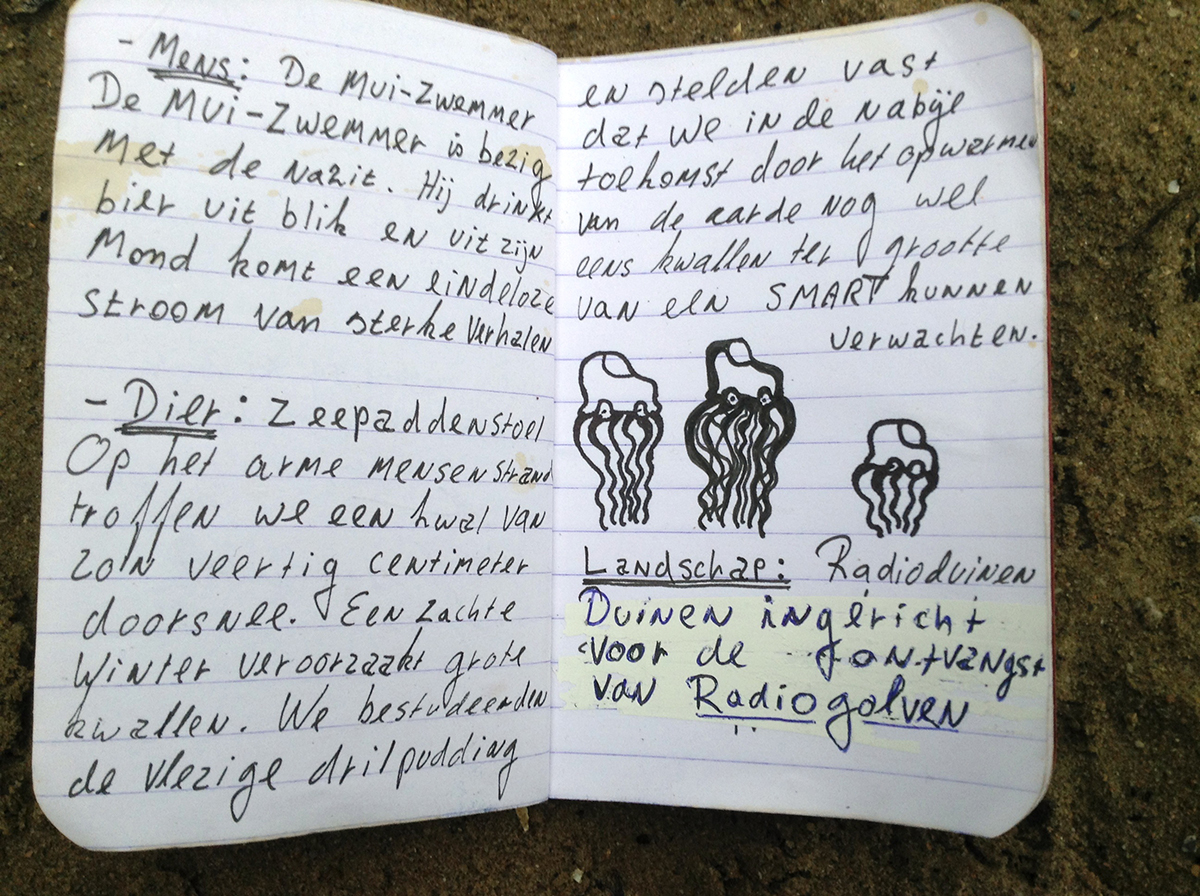 - Mens: De Mui-Zwemmer
De Mui-Zwemmer is bezig
met de nazit. Hij drinkt
bier uit blik en uit zijn
Mond komt een eindeloze
stroom van sterke verhalen
- Dier: Zeepaddenstoel
Op het arme mensen strand
troffen we een kwal van
zo'n veertig centimeter
doorsnee. Een zachte
Winter veroorzaakt grote
kwallen. We bestudeerden
de vlezige drilpudding
en stelden vast
dat we in de nabije
toekomst door het opwarmen
van de aarde nog wel
eens kwallen ter grootte
van een SMART kunnen
verwachten.
Landschap: Radioduinen
Duinen ingericht
voor de ontvangst
van Radiogolven